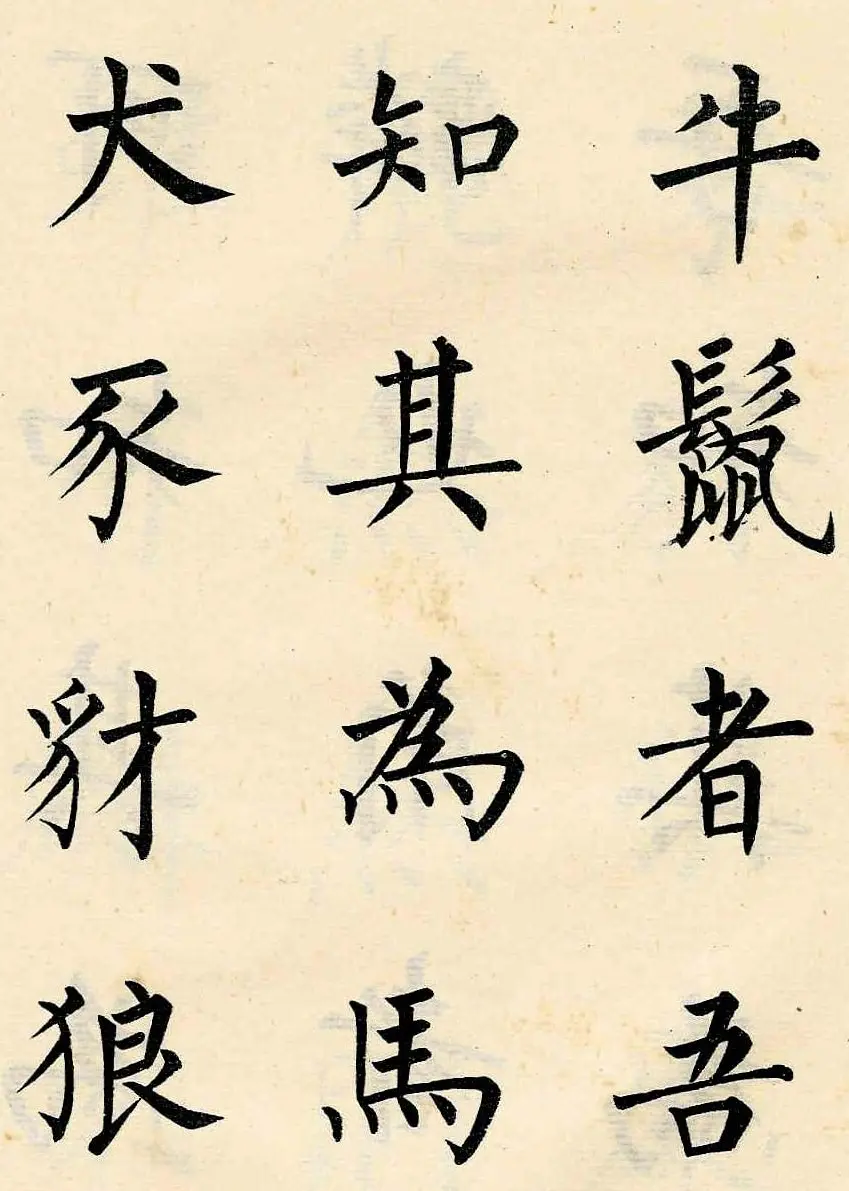 牛鬣者吾
知其為馬
犬豕豺狼